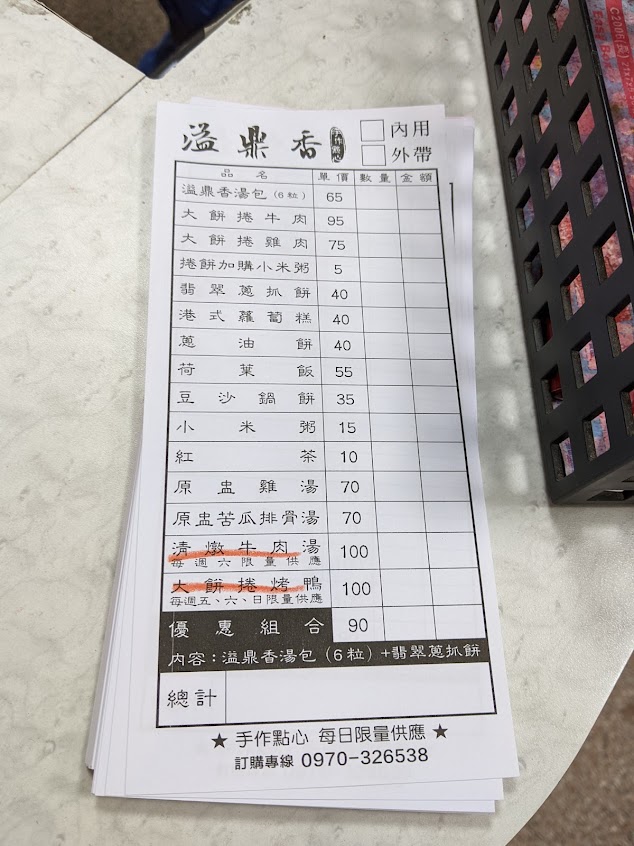 溢鼎香 手作點心
內用
外帶
品名 單價 數量 金額
溢鼎香湯包(6粒) 65
大餅捲牛肉 95
大餅捲雞肉 75
捲餅加購小米粥 5
翡翠蔥抓餅 40
港式蘿蔔糕 40
蔥油餅 40
荷葉飯 55
豆沙鍋餅 35
小米粥 15
紅茶 10
原盅雞湯 70
原盅苦瓜排骨湯 70
清燉牛肉湯 100
每週六限量供應
大餅捲烤鴨 100
每週五、六、日限量供應
優惠組合 90
內容:溢鼎香湯包(6粒)+翡翠蔥抓餅
總計
★ 手作點心 每日限量供應 ★
訂購專線 0970-326538